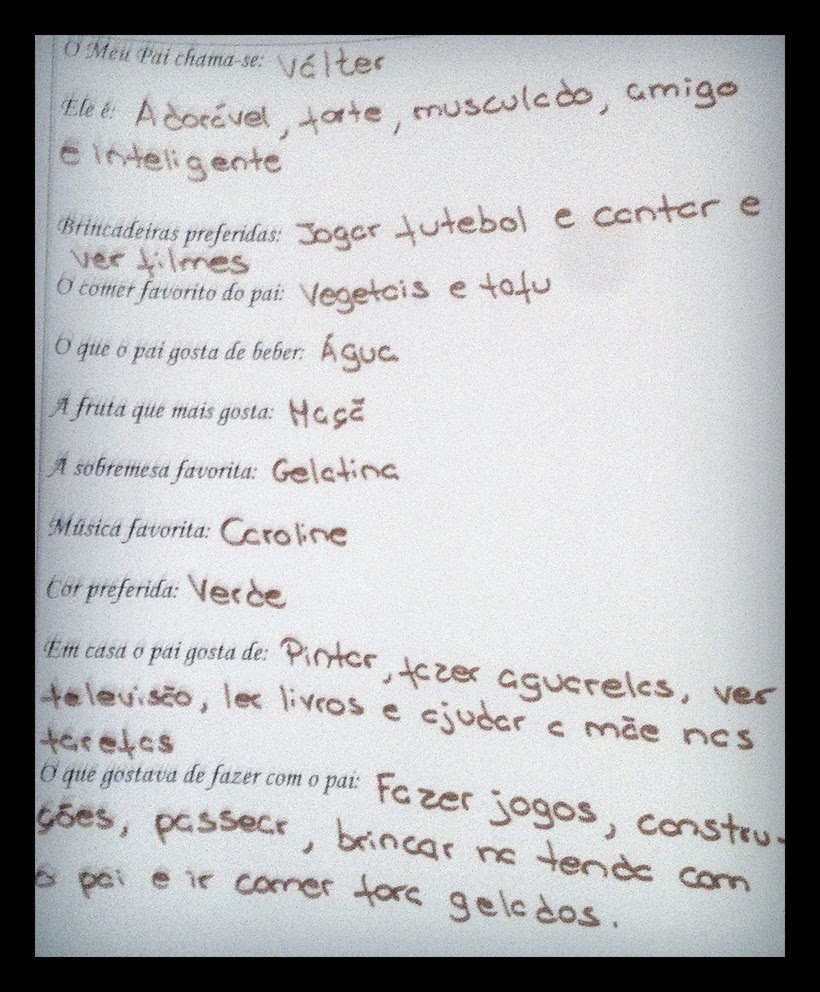 O Meu Pai chama-se: Válter
Ele é: Adorável, forte, musculado, amigo
e inteligente
Brincadeiras preferidas: Jogar futebol e cantar e
ver filmes
O comer favorito do pai: Vegetais e tofu
O que o pai gosta de beber: Água
A fruta que mais gosta: Maçã
A sobremesa favorita: Gelatina
Música favorita: Caroline
Cor preferida: Verde
Em casa o pai gosta de: Pintar, fazer aguarelas, ver
televisão, ler livros e ajudar a mãe nas
tarefas
O que gostava de fazer com o pai: Fazer jogos, constru-
ções, passear, brincar na tenda com
o pai e ir comer fora gelados.